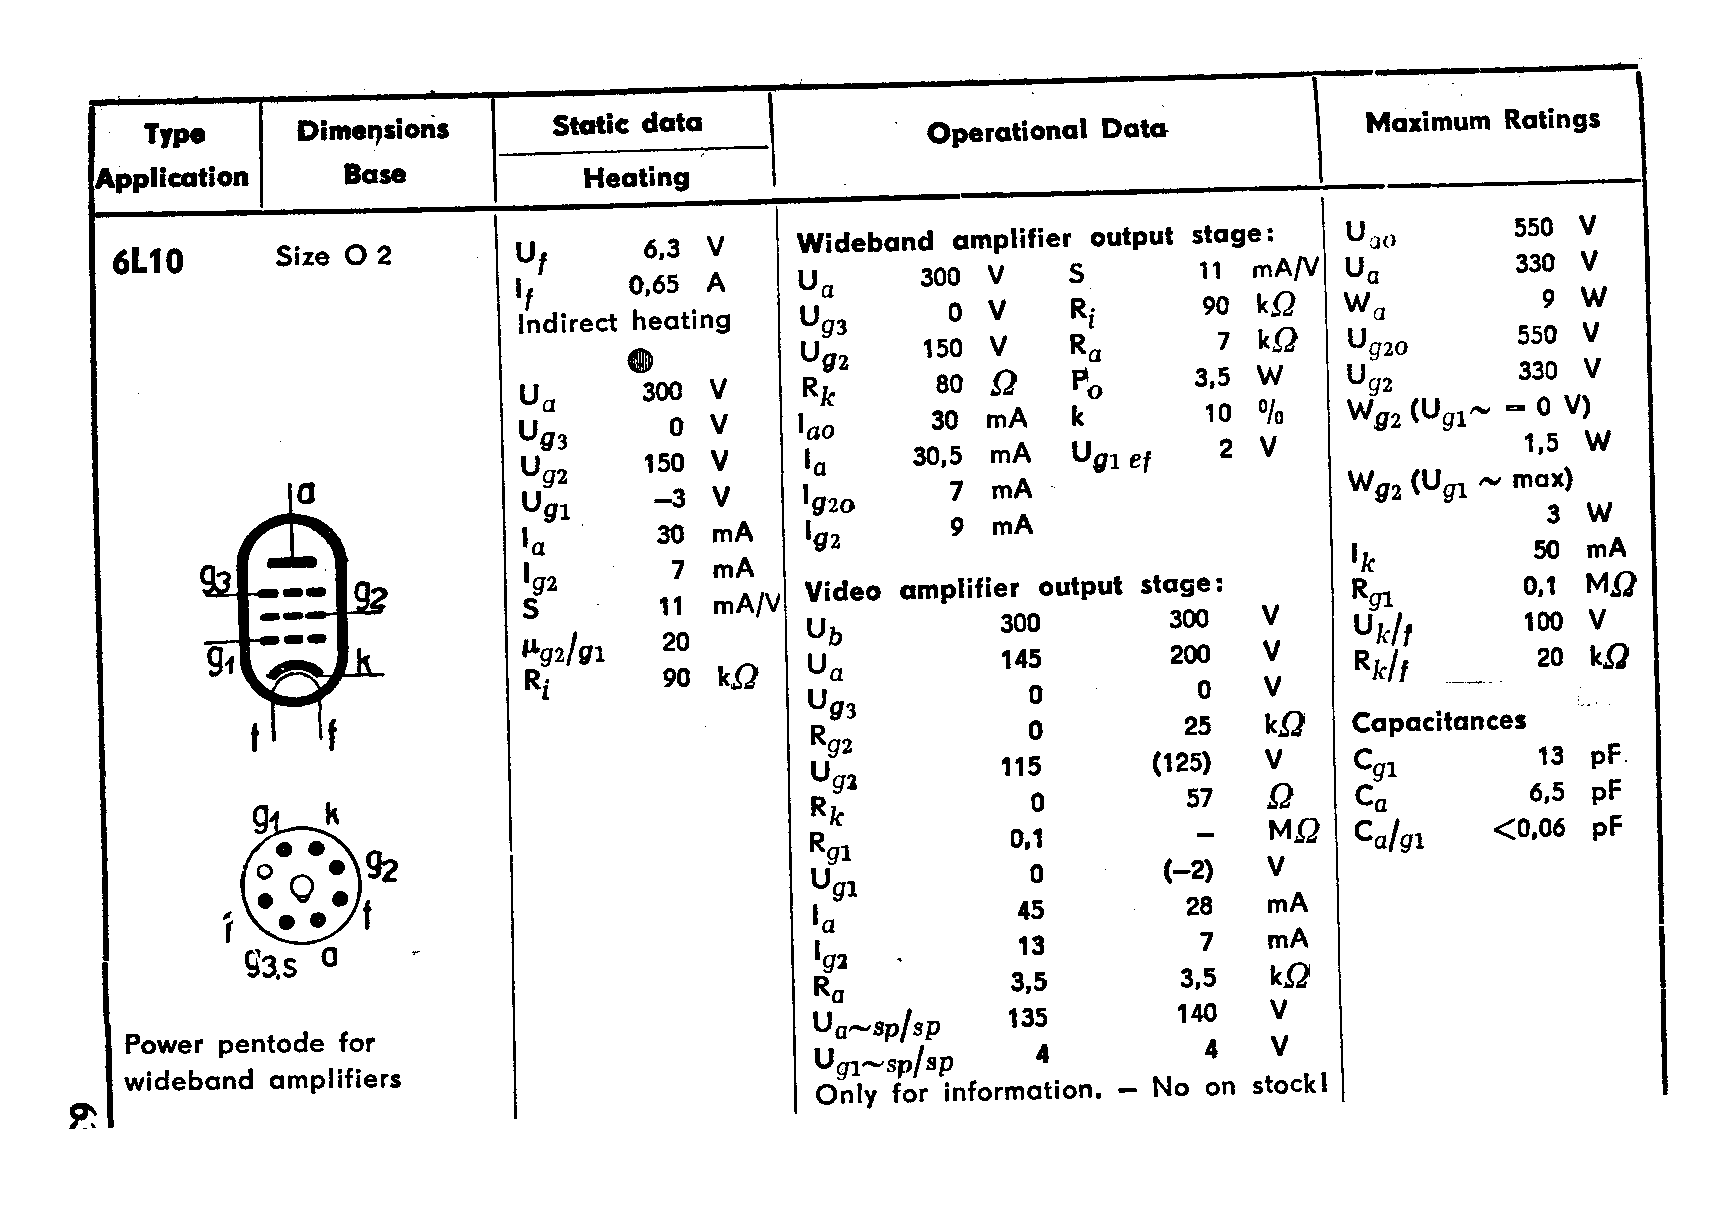 Type
Application
Dimensions
Base
Static data
Heating
Operational Data
Maximum Ratings
6L10
Size O 2
a
g3
g2
g1
k
f
f
g1
k
g2
f
f
g3,s
a
Power pentode for
wideband amplifiers
Uf 6,3 V
If 0,65 A
Indirect heating
Ua 300 V
Ug3 0 V
Ug2 150 V
Ug1 –3 V
Ia 30 mA
Ig2 7 mA
S 11 mA/V
μg2/g1 20
Ri 90 kΩ
Wideband amplifier output stage:
Ua 300 V S 11 mA/V
Ug3 0 V Ri 90 kΩ
Ug2 150 V Ra 7 kΩ
Rk 80 Ω Po 3,5 W
Iao 30 mA k 10 %
Ia 30,5 mA Ug1 ef 2 V
Ig2o 7 mA
Ig2 9 mA
Video amplifier output stage:
Ub 300 300 V
Ua 145 200 V
Ug3 0 0 V
Rg2 0 25 kΩ
Ug2 115 (125) V
Rk 0 57 Ω
Rg1 0,1 – MΩ
Ug1 0 (–2) V
Ia 45 28 mA
Ig2 13 7 mA
Ra 3,5 3,5 kΩ
Ua~sp/sp 135 140 V
Ug1~sp/sp 4 4 V
Only for information. – No on stock!
Uao 550 V
Ua 330 V
Wa 9 W
Ug2o 550 V
Ug2 330 V
Wg2 (Ug1~ = 0 V)
1,5 W
Wg2 (Ug1 ~ max)
3 W
Ik 50 mA
Rg1 0,1 MΩ
Uk/f 100 V
Rk/f 20 kΩ
Capacitances
Cg1 13 pF
Ca 6,5 pF
Ca/g1 <0,06 pF